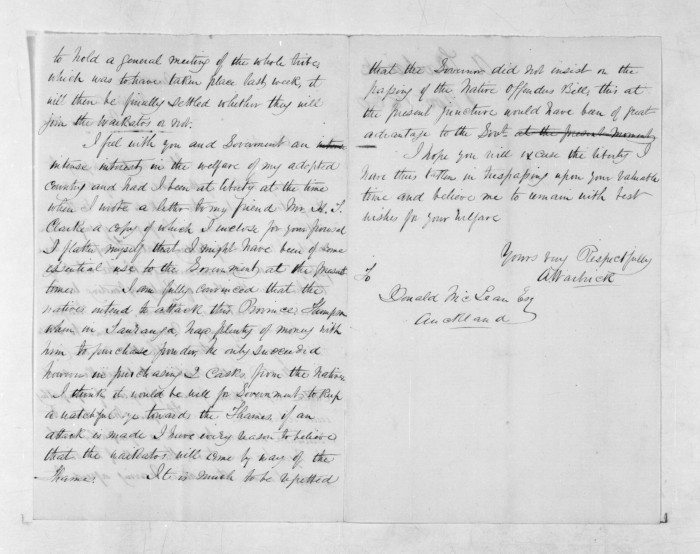 to hold a general meeting of the whole tribe
which was to have taken place last week, it
will then be finally settled whether they will
join the Waikatos or not.
I feel with you and Government an
intense interest in the welfare of my adopted
Country and had I been at liberty at the time
when I wrote a letter to my friend Mr. H. T.
Clarke a copy of which I inclose for your perusal
I flatter myself that I might have been of some
essential use to the Government at the present
time I am fully convinced that the
natives intend to attack this Province, Thompson
when in Tauranga had plenty of money with
him to purchase powder, he only succeeded
however in purchasing 2 Casks from the Natives
I think it would be well for Government to keep
a watchful eye toward the Thames, if an
attack is made I have every reason to believe
that the Waikatos will come by way of the
Thames It is much to be regretted
that the Governor did not insist on the
passing of the Native Offenders Bill, this at
the present juncture would have been of great
advantage to the Govt. at the present moment
I hope you will excuse the liberty I
have thus taken in trespassing upon your valuable
time and believe me to remain with best
wishes for your welfare
Yours very Respectfully
A Warbrick
To
Donald McLean Esq
Auckland